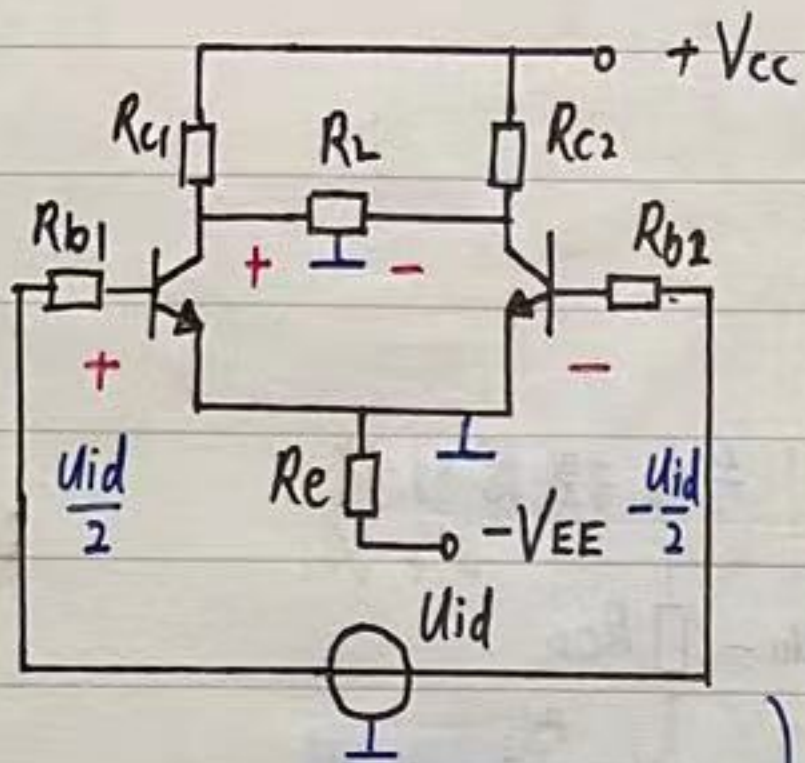 +Vcc
Rc1 RL Rc2
Rb1 Rb2
+ -
+ -
Uid/2 Re -VEE -Uid/2
Uid
)